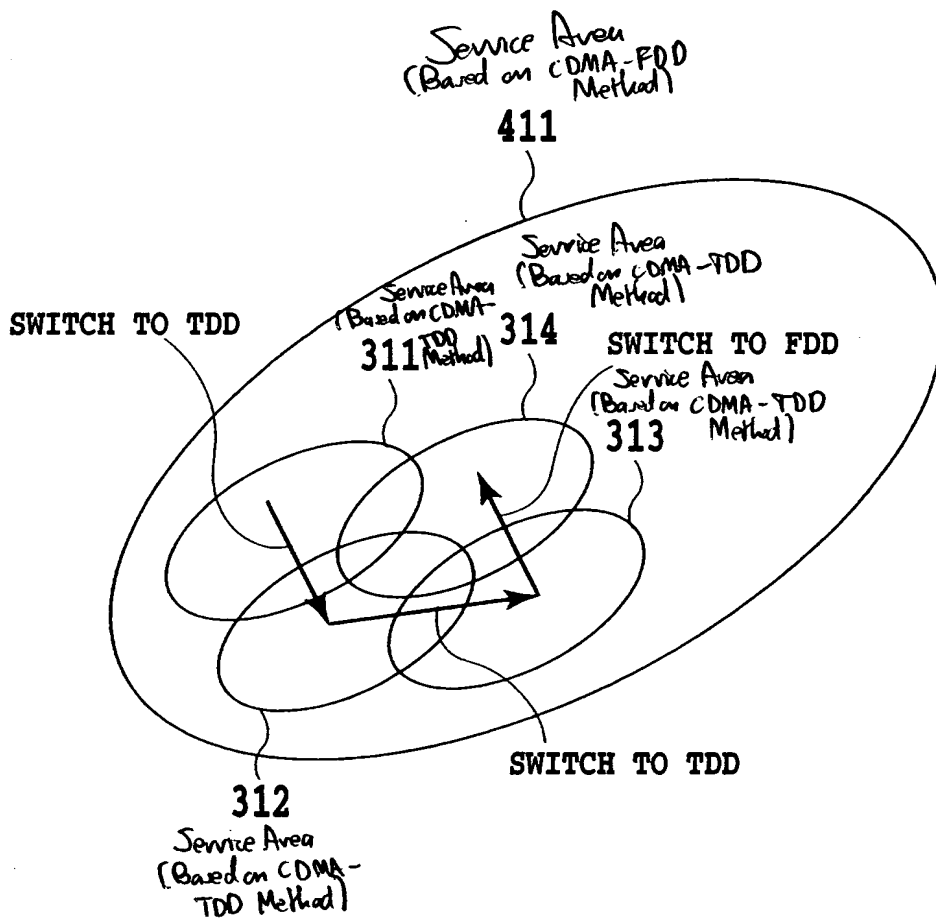 Service Area
(Based on CDMA-FDD
Method)
411
Service Area
(Based on CDMA-TDD
Method)
314
Service Area
(Based on CDMA-
TDD
Method)
311
SWITCH TO TDD
SWITCH TO FDD
Service Area
(Based on CDMA-TDD
Method)
313
SWITCH TO TDD
312
Service Area
(Based on CDMA-
TDD Method)